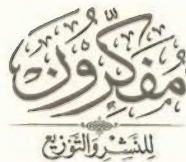 مفكرون
للنشر والتوزيع